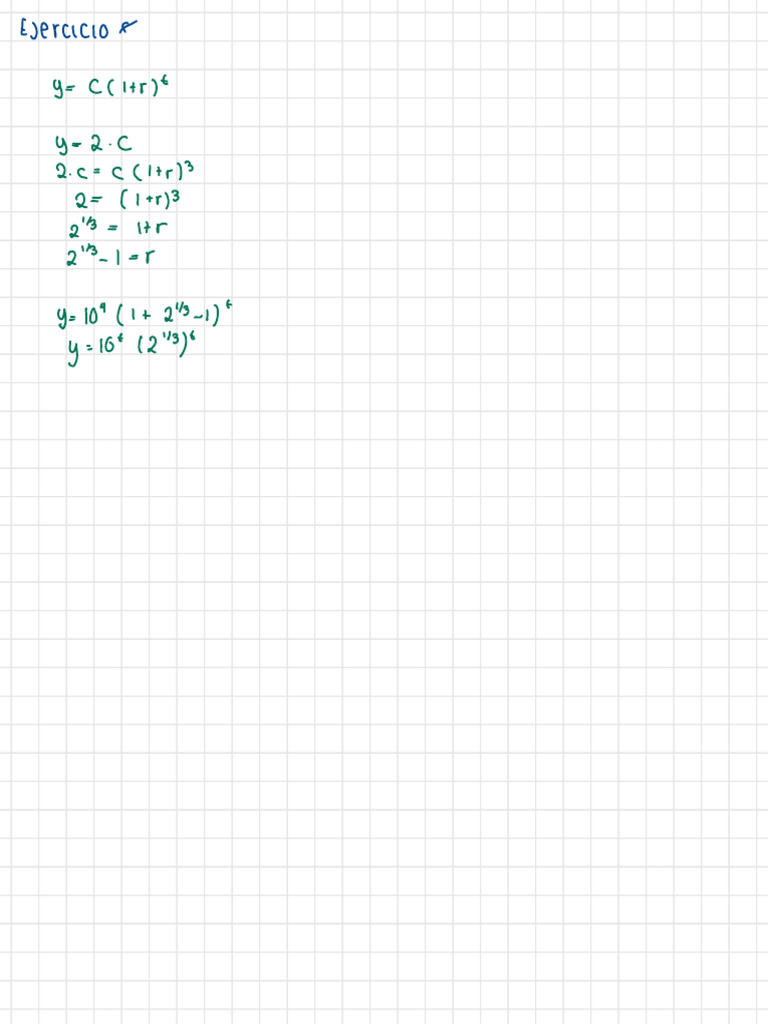 Ejercicio
y= C(1+r)^t
y= 2·C
2·c= c(1+r)^3
2= (1+r)^3
2^1/3 = 1+r
2^1/3 - 1 = r
y= 10^4 (1+ 2^1/3 -1)^t
y= 10^t (2^1/3)^t